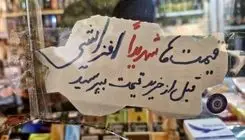 قیمت‌ها شدیداً افزایشی
قبل از خرید قیمت بپرسید